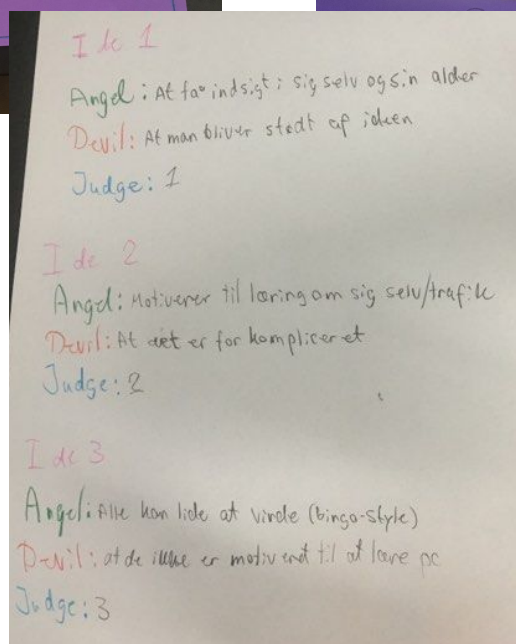 Ide 1
Angel: At få indsigt i sig selv og sin alder
Devil: At man bliver stødt af ideen
Judge: 1
Ide 2
Angel: Motiverer til læring om sig selv/trafik
Devil: At det er for kompliceret
Judge: 2
Ide 3
Angel: Alle kan lide at vinde (bingo-style)
Devil: at de ikke er motiveret til at lære pc
Judge: 3